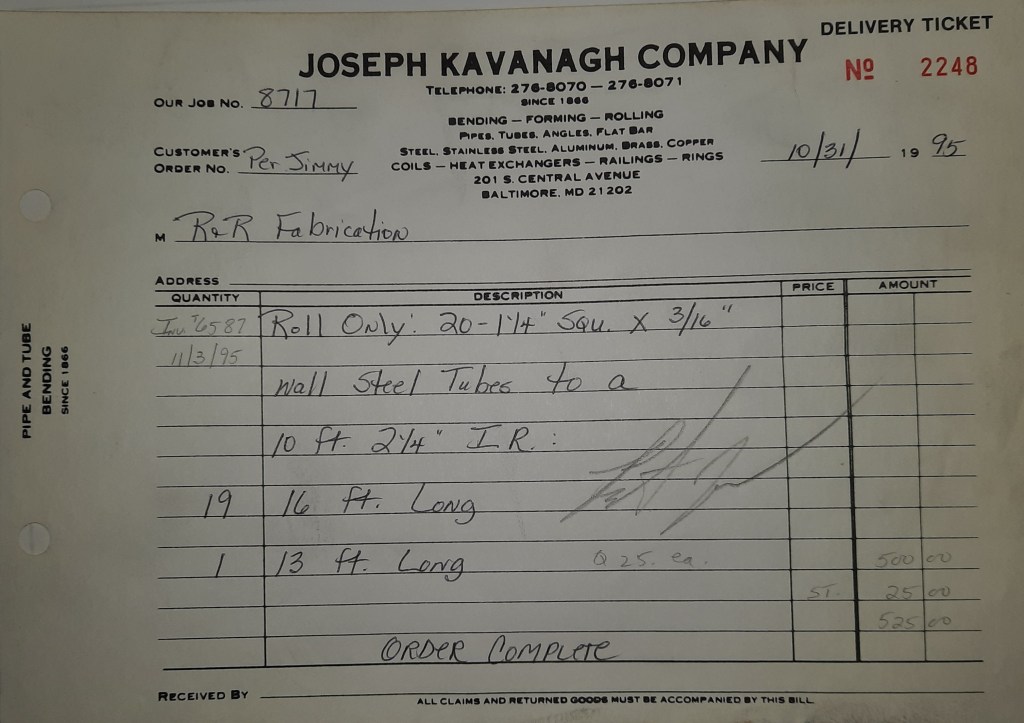 DELIVERY TICKET
JOSEPH KAVANAGH COMPANY
Nº 2248
TELEPHONE: 276-8070 — 276-8071
SINCE 1866
OUR JOB NO. 8717
BENDING — FORMING — ROLLING
PIPES, TUBES, ANGLES, FLAT BAR
STEEL, STAINLESS STEEL, ALUMINUM, BRASS, COPPER
CUSTOMER'S ORDER NO. Per Jimmy
COILS — HEAT EXCHANGERS — RAILINGS — RINGS
10/31/ 19 95
201 S. CENTRAL AVENUE
BALTIMORE, MD 21202
M R&R Fabrication
ADDRESS
QUANTITY DESCRIPTION PRICE AMOUNT
Inv. # 6587 Roll Only: 20 - 1 1/4" Squ. X 3/16"
11/3/95
wall Steel Tubes to a
10 ft. 2 1/4" I.R.:
19 16 ft. Long
1 13 ft. Long @ 25. ea. 500 00
ST. 25 00
525 00
ORDER COMPLETE
RECEIVED BY
ALL CLAIMS AND RETURNED GOODS MUST BE ACCOMPANIED BY THIS BILL
PIPE AND TUBE
BENDING
SINCE 1866